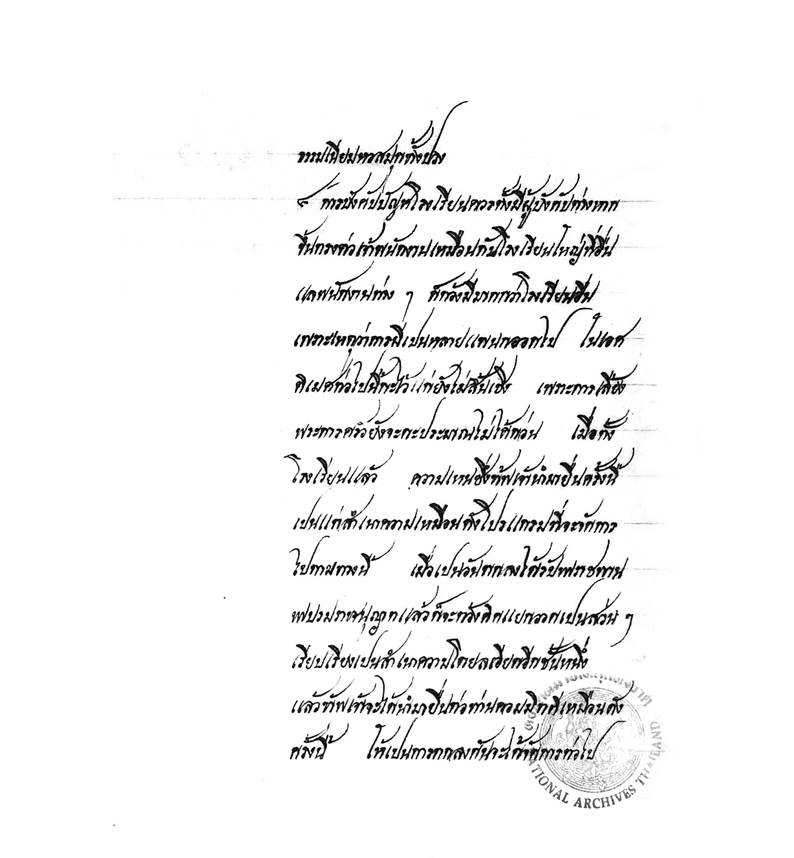 ธรรมเนียมหอสมุดทั้งปวง
๙ การบังคับบัญชาโรงเรียนควรตั้งมีผู้บังคับต่างหาก
ขึ้นตรงต่อเจ้าพนักงานเหมือนกับโรงเรียนใหญ่ที่อื่น
แลพนักงานต่าง ๆ ก็ควรมีมากกว่าโรงเรียนอื่น
เพราะเหตุว่าการมีเปนหลายแพนกออกไป
ต่อไปนี้กะไว้แต่ยังไม่สิ้นเชิง เพราะการเลี้ยง
พระการครัวยังจะกะประมาณไม่ได้ก่อน เมื่อตั้ง
โรงเรียนแล้ว ความเหนซึ่งข้าพเจ้านำมายื่นครั้งนี้
เปนแต่สำเนาความเหมือนดังโปรแกรมที่จะจัดการ
ไปตามทางนี้ เมื่อเปนอันตกลงได้รับพระราชทาน
พระบรมราชานุญาตแล้วก็จะต้องคิดแยกออกเปนส่วน ๆ
เรียบเรียงเปนสำเนาความโดยลเอียดอีกชั้นหนึ่ง
แล้วข้าพเจ้าจะได้นำมายื่นต่อท่านคอมมิตตีเหมือนดัง
ครั้งนี้ ให้เปนการตกลงกันจะได้จัดการต่อไป
หอจดหมายเหตุแห่งชาติ
NATIONAL ARCHIVES THAILAND